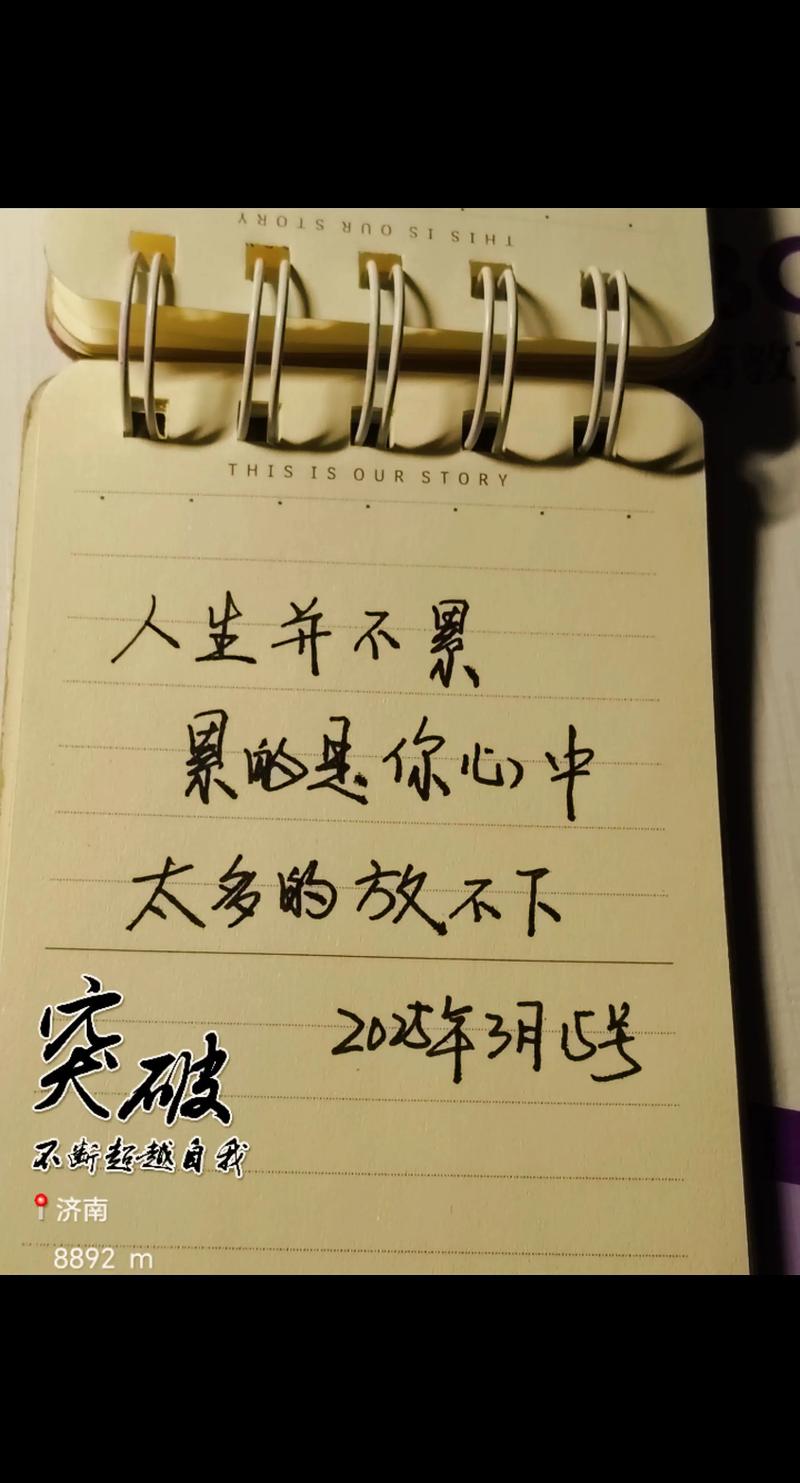 THIS IS OUR STORY
THIS IS OUR STORY
人生并不累
累的是你心中
太多的放不下
2025年3月15号
突破
不断超越自我
济南
8892 m